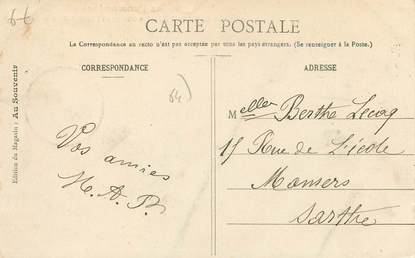 66
CARTE POSTALE
La Correspondance au recto n'est pas acceptée par tous les pays étrangers. (Se renseigner à la Poste.)
CORRESPONDANCE
ADRESSE
Edition du Magasin : Au Souvenir
64)
Vos amies
M. A. B.
Melles Berthe Lecoq
15 Rue de l'école
Mamers
Sarthe